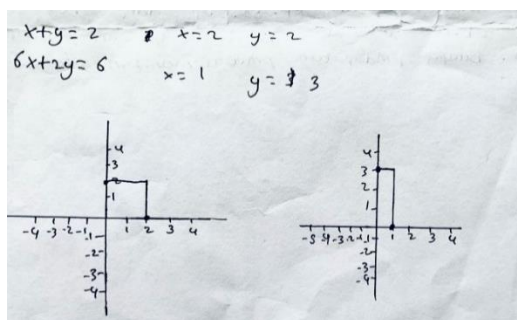 x+y=2 x=2 y=2
6x+2y=6
x=1 y=3
4
3
2
1
-4 -3 -2 -1 1 2 3 4
-1
-2
-3
-4
4
3
2
1
-5 -4 -3 -2 -1 1 2 3 4
-1
-2
-3
-4